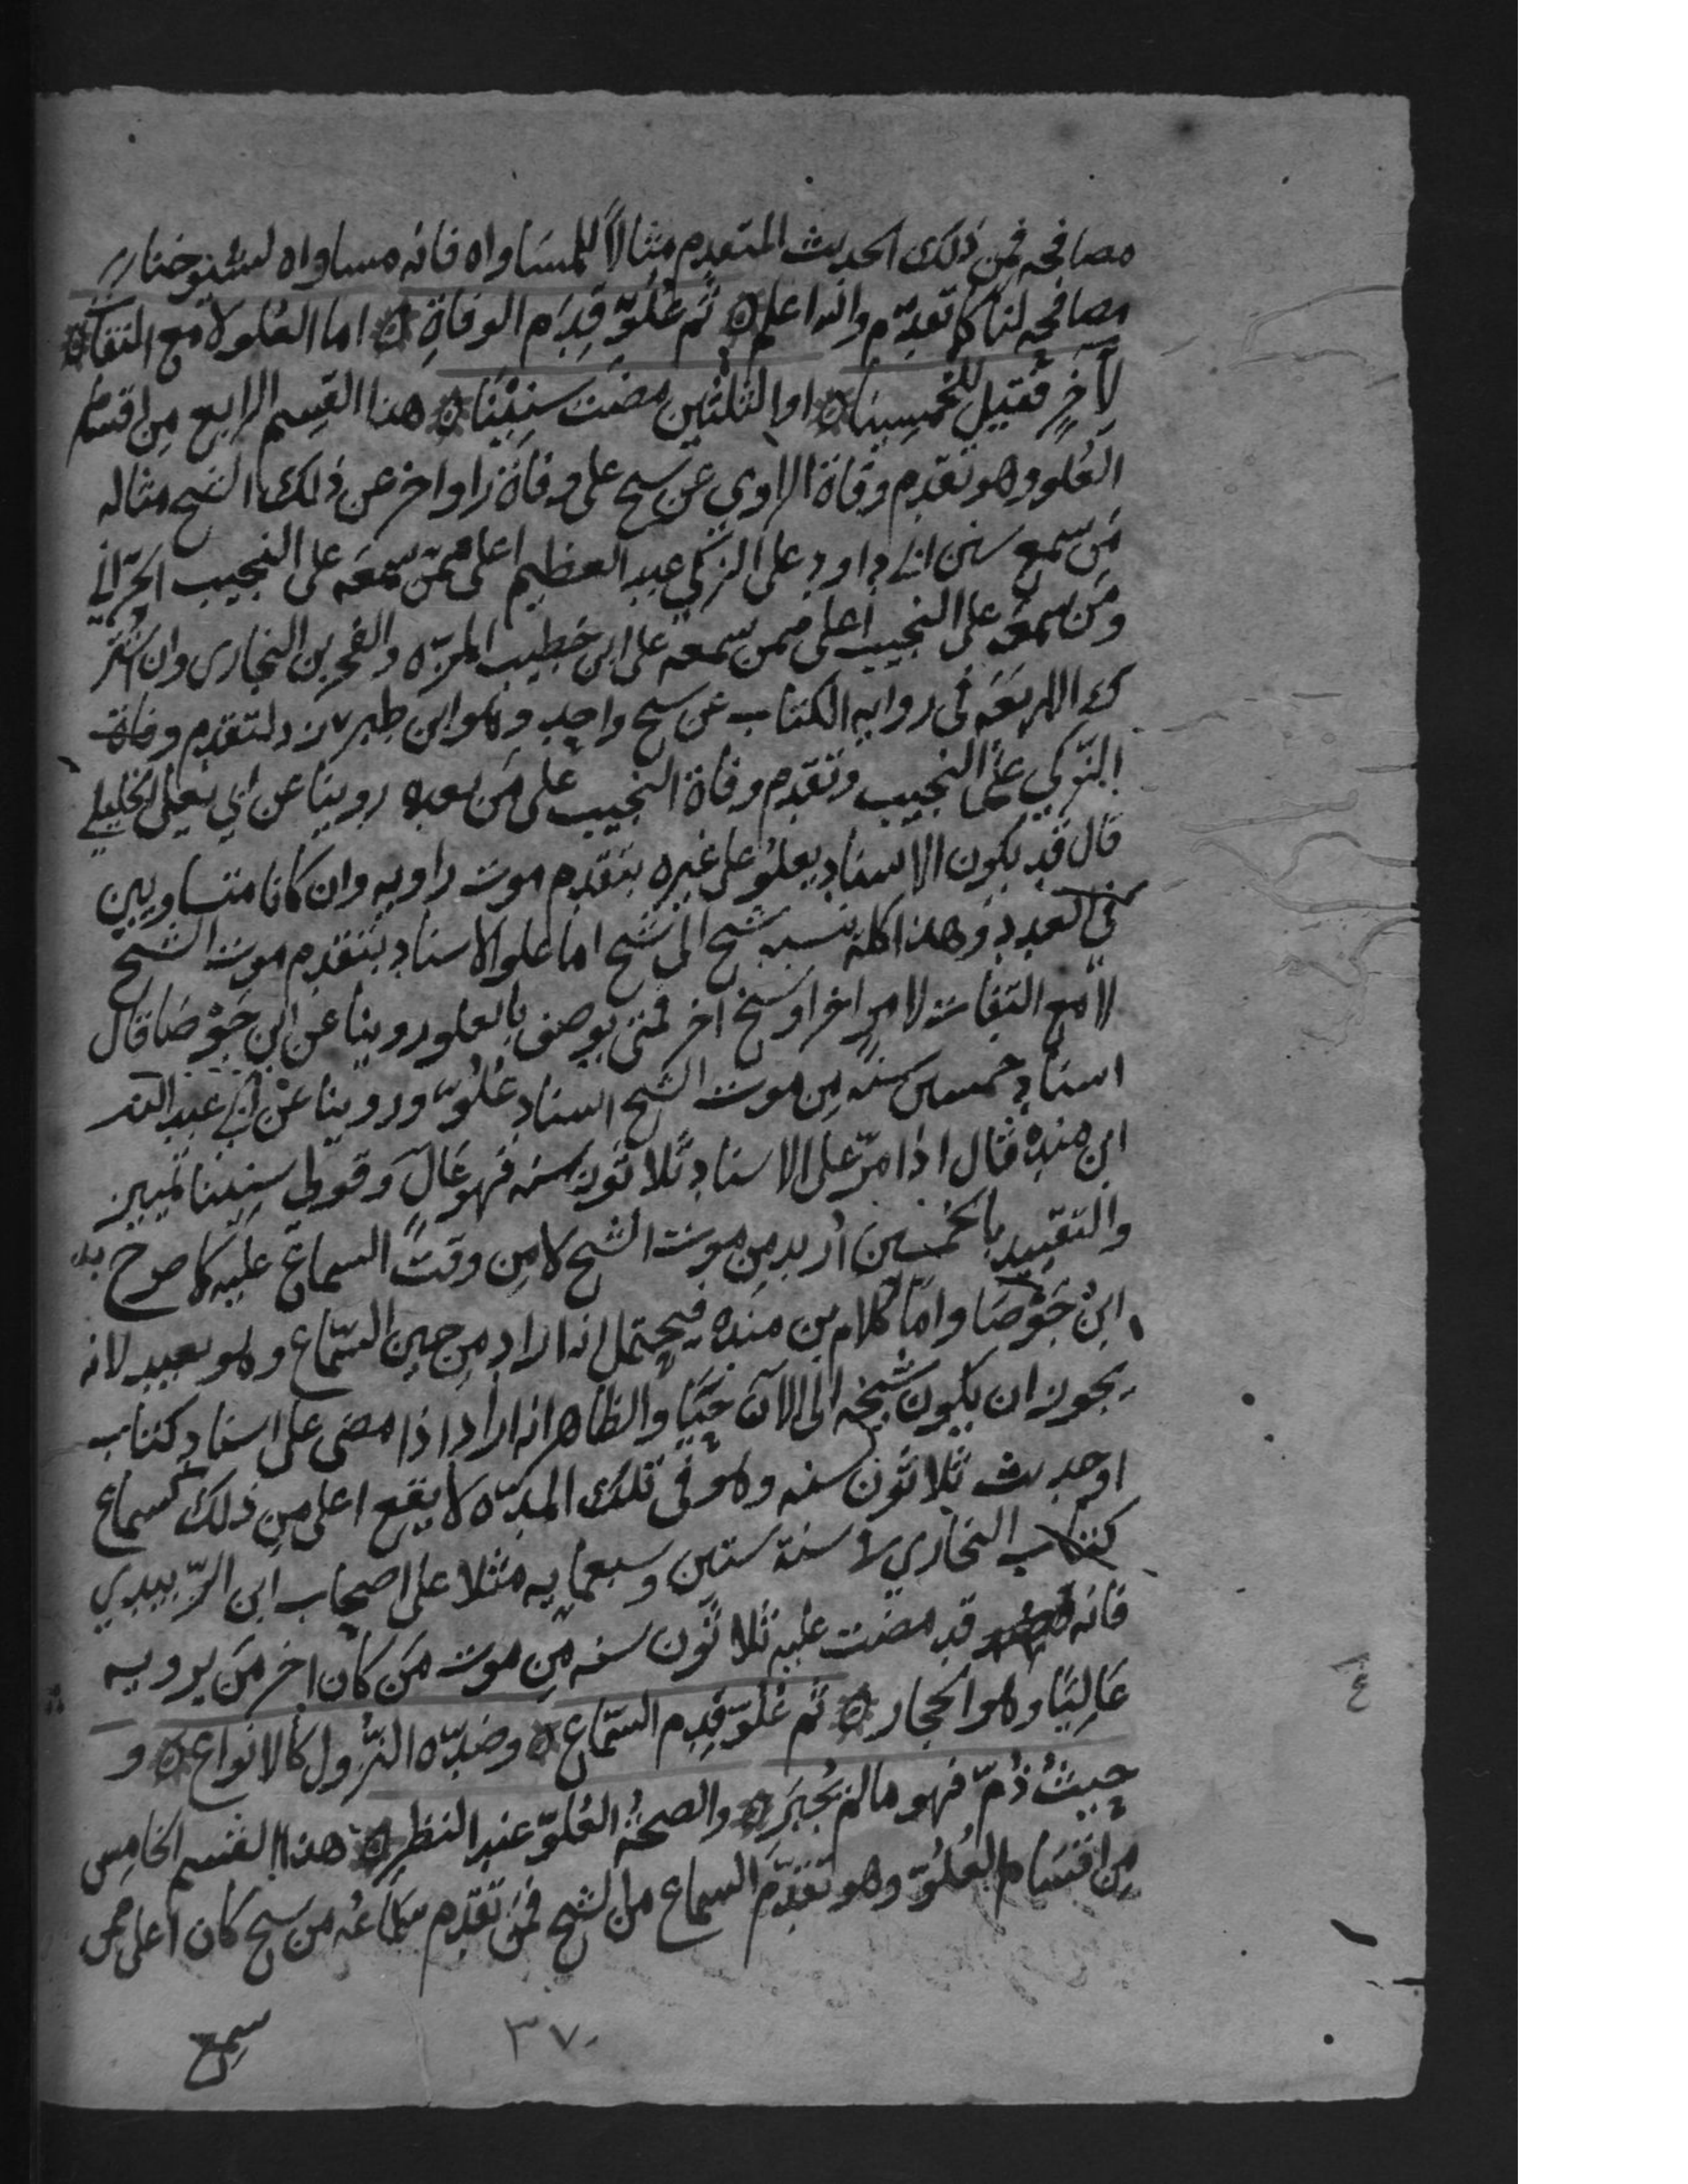 مصافحه فمن ذلك الحديث المتقدم مثالاً للمساواه فانه مساواه لشيوخنا
مصافحه لنا كما تقدّم والله اعلم ثم عُلُوّ قِدَم الوفاةِ اما العُلو لا مع التفات
لآخرٍ فقيل للخمسينا او الثلثين مضت سنينا هذا القِسم الرابع مِن اقسام
العُلو وهو تقدم وفاة الراوي عن شيخ على وفاة راو اخر عن ذلك الشيخ مثاله
مَن سمع سنن ابي داود على الزكي عبد العظيم اعلى ممّن سمعَه على النجيب الحرّاني
ومَن سمعَه على النجيب اعلى ممن سمعه على ابن خطيب المزّه والفخر بن البخارى وان اشترك
الاربعَه فى روايه الكتاب عن شيخ واحدٍ وهو ابن طبرزد لتقدم وفاة
الزّكي على النجيب وتقدم وفاة النجيب على مَن بعده روينا عن ابي يعلى الخليلي
قال قد يكون الاسناد يعلو على غيره بتقدم موت راويه وان كانا متساويين
في العدد وهذا كله بنسبه شيخ الى شيخ اما علو الاسناد بتقدم موت الشيخ
لا مع التفات لامرٍ اخر او شيخ اخر فمتى يوصف بالعلو روينا عن ابن جَوْصَا قال
اسناد خمسين سنه مِن موت الشيخ اسناد عُلُوّ وروينا عن ابي عبد الله
ابن منده قال اذا مرّ على الاسناد ثلاثون سنه فهو عَالٍ وقولى سنينا تمييز
والتقييد بالخمسين اُريد مِن موت الشيخ لا مِن وقت السماع عليه كما صرح به
ابنُ جَوْصَا وامّا كلام بن مَنده فيحتمل انه اراد مِن حين السّماع وهو بعيد لانه
يجوز ان يكون شيخه الى الآن حيًّا والظاهر انه اراد اذا مضى على اسناد كتاب
او حديث ثلاثون سنه وهو فى تلك المدّه لا يقع اعلى مِن ذلك كسماع
كتاب البخاري في سنة ستين وسبعمايه مثلا على اصحاب ابن الزّبيدي
فانه قد مضت عليه ثلاثون سنه مِن موت مَن كان اخر مَن يرويه
عَاليًا وهو الحجار ثم عُلوّ قِدم السّماع وضدّه النزُول كالانواع و
حيثُ ذُمّ فهو ما لم يُجبَر والصحةُ العُلوّ عند النظر هذا القسم الخامِس
مِن اقسَام العُلوّ وهو تقدّم السماع من الشيخ فمن تقدّم سَمَاعُه من شيخ كان اعلى ممن
سمع
٣٧٠